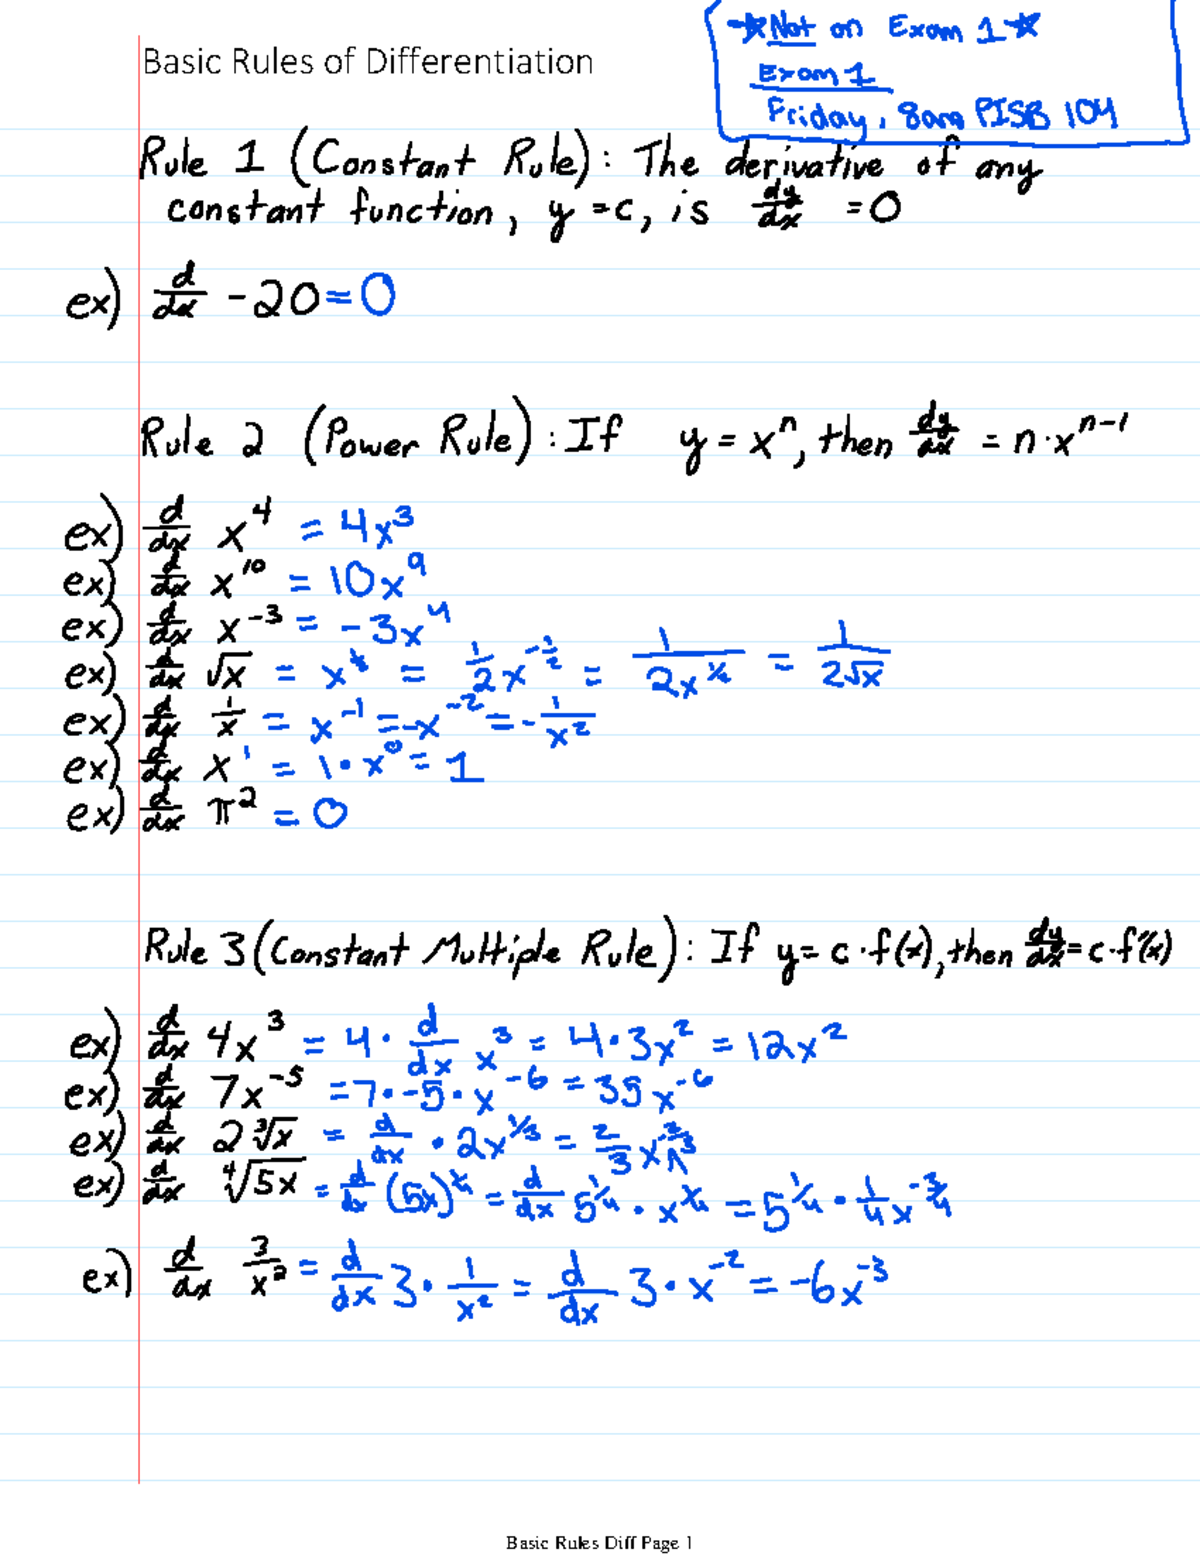 ☆Not on Exam 1☆
Exam 1
Friday, 8am PISB 104
Basic Rules of Differentiation
Rule 1 (Constant Rule): The derivative of any
constant function, y = c, is dy/dx = 0
ex) d/dx -20 = 0
Rule 2 (Power Rule): If y = xⁿ, then dy/dx = n·xⁿ⁻¹
ex) d/dx x⁴ = 4x³
ex) d/dx x¹⁰ = 10x⁹
ex) d/dx x⁻³ = -3x⁴
ex) d/dx √x = x^½ = 1/2 x^-½ = 1/(2x^½) = 1/(2√x)
ex) d/dx 1/x = x⁻¹ = -x⁻² = -1/x²
ex) d/dx x¹ = 1·x⁰ = 1
ex) d/dx π² = 0
Rule 3 (Constant Multiple Rule): If y = c·f(x), then dy/dx = c·f'(x)
ex) d/dx 4x³ = 4·d/dx x³ = 4·3x² = 12x²
ex) d/dx 7x⁻⁵ = 7·-5·x⁻⁶ = 35x⁻⁶
ex) d/dx 2∛x = d/dx · 2x^1/3 = 2/3 x^-2/3
ex) d/dx ∜5x = d/dx (5x)^¼ = d/dx 5^¼ · x^¼ = 5^¼ · 1/4 x^-3/4
ex) d/dx 3/x² = d/dx 3·1/x² = d/dx 3·x⁻² = -6x⁻³
Basic Rules Diff Page 1